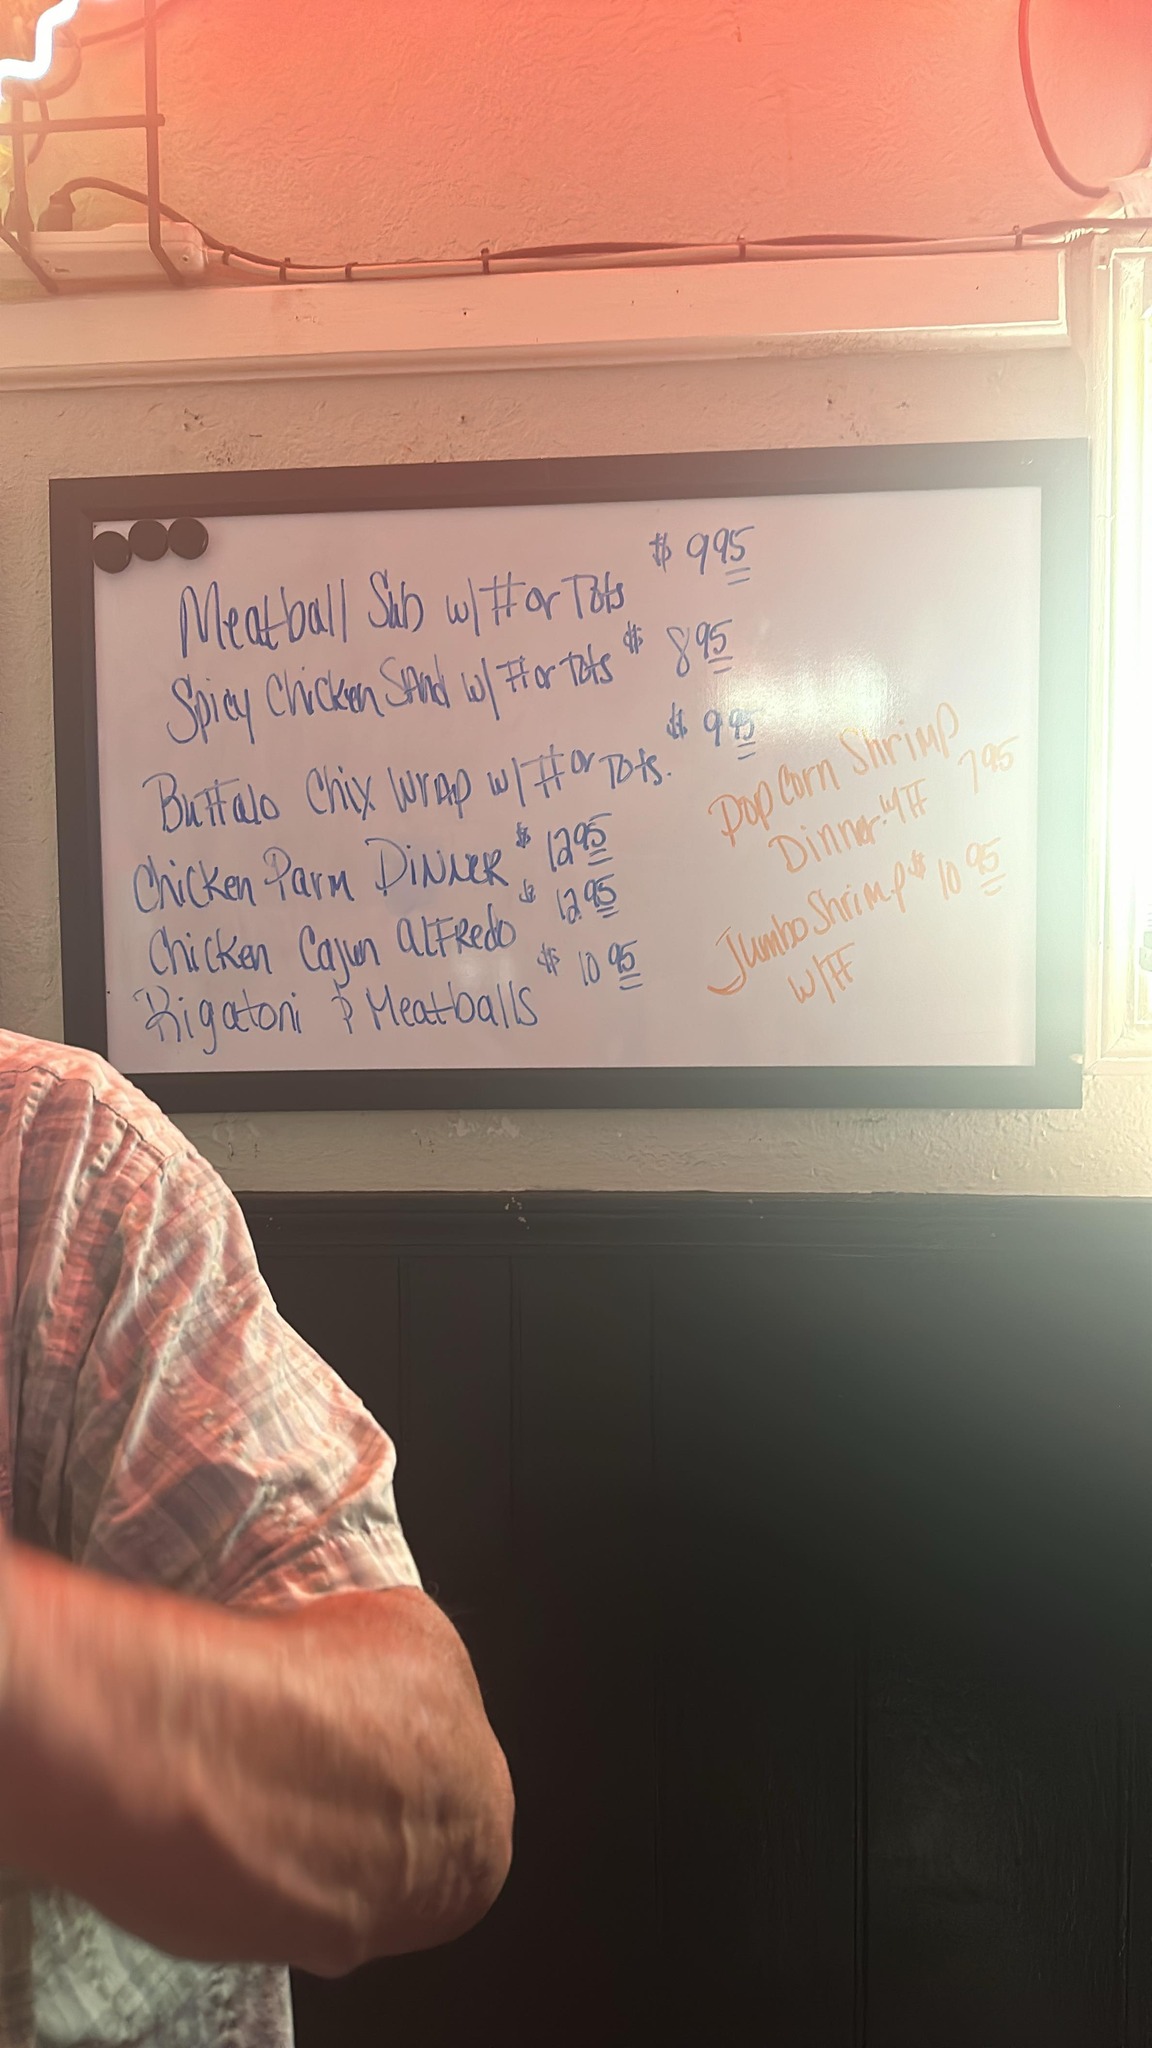 Meatball Sub w/ FF or Tots $ 9 95
Spicy Chicken SAnd w/ FF or Tots $ 8 95
Buffalo Chix Wrap w/ FF or Tots. $ 9 95
Chicken Parm DiNNER $ 12 95
Chicken Cajun AlFRedo $ 12 95
Rigatoni & Meatballs $ 10 95
Pop Corn Shrimp
Dinner w/ FF 7 95
Jumbo Shrimp $ 10 95
w/ FF